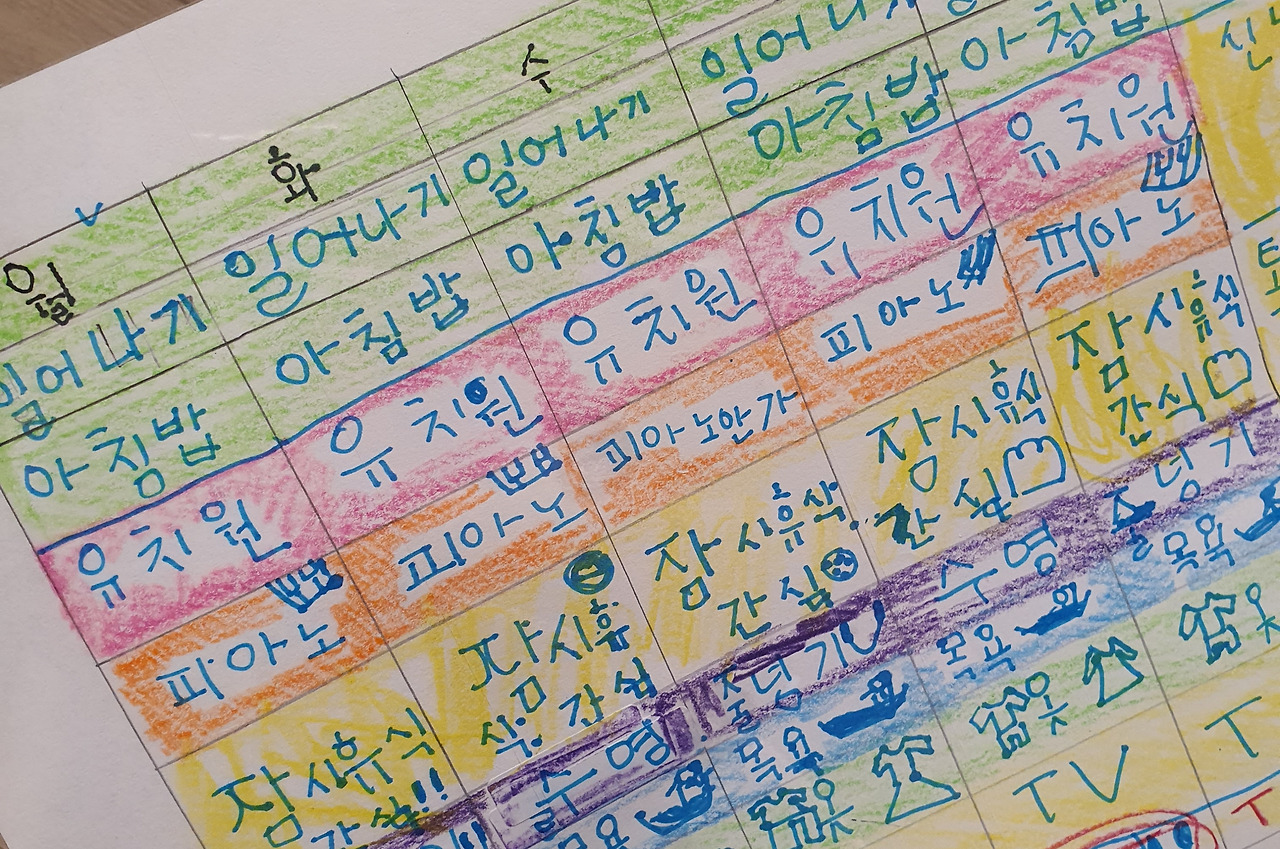 월 화 수
일어나기 일어나기 일어나기 일어나기
아침밥 아침밥 아침밥 아침밥 아침밥
유치원 유치원 유치원 유치원 유치원
피아노 피아노 피아노안가 피아노 피아노
잠시휴식 잠시휴식 잠시휴식 잠시휴식 잠시휴식
간식!! 간식 간식 간식 간식
수영 줄넘기 수영 줄넘기
목욕 목욕 목욕 목욕
잠옷 잠옷 잠옷
TV T